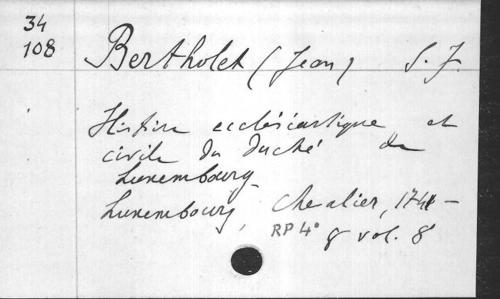 34
108
Bertholet (Jean) S. J.
Histoire ecclésiastique et
civile du Duché de
Luxembourg
Luxembourg, Chevalier, 1741 -
RP 4° 8 vol. 8°